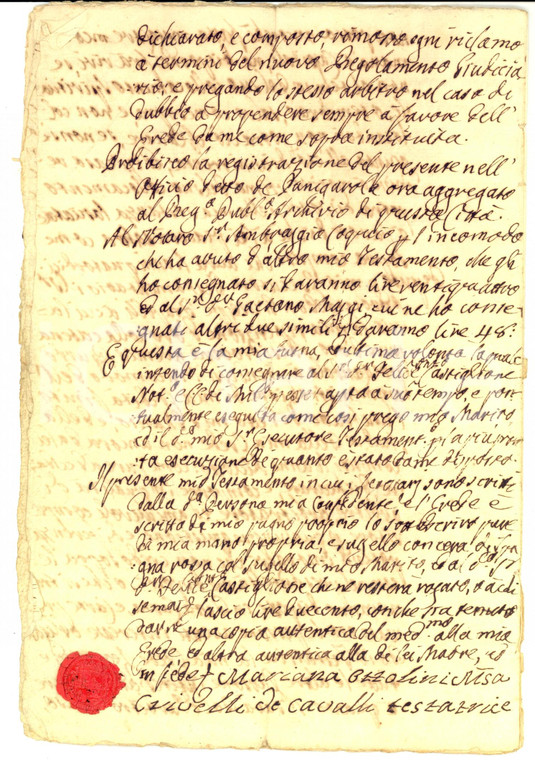 dichiarato, e composto, rimosso ogni riclamo
a termini del nuovo Regolamento Giudicia
rio, e pregando lo stesso arbitro nel caso di
dubbio a propendere sempre a favore dell'
Erede da me come sopra instituita.
Proibisco la registrazione del presente nell'
Officio detto de Panigarola ora aggregato
al Reg.º Publ.º Archivio di questa Città.
Al Notaro S.r Ambroggio Cognio p l'incomodo
ch'ha avuto d'altro mio Testamento che gli
ho consegnato si daranno lire ventiquattro
ed al S.r Gaetano Maggi cui ne ho conse-
gnati altri due simili si daranno lire 48:
E questa è la mia ultima volontà la quale
intendo di consegnare al S.r Castiglione
Not.º di Mil.º per esser aperta a suo tempo, e pon
tualmente eseguita come così prego mio Marito
ed il d.º mio S.r Esecutore Testament.º p la più pron
ta esecuzione di quanto è stato da me disposto.
Il presente mio Testamento in cui i sono scritti
dalla d.ª Persona mia confidente, e l'Erede è
scritto di mio pugno proprio lo sottoscrivo pure
di mia mano propria, e sugello con cera di Spa
gna rossa col sugello di mio Marito, ed al d.º
Castiglione che ne resterà rogato, o a chi
lascio lire duecento, con che sia tenuto
dar ne una copia autentica del med.mo alla mia
Erede ed altra autentica alla di lei Madre, ed
in fede Mariana Ottolini M.sa
Crivelli de Cavalli testatrice